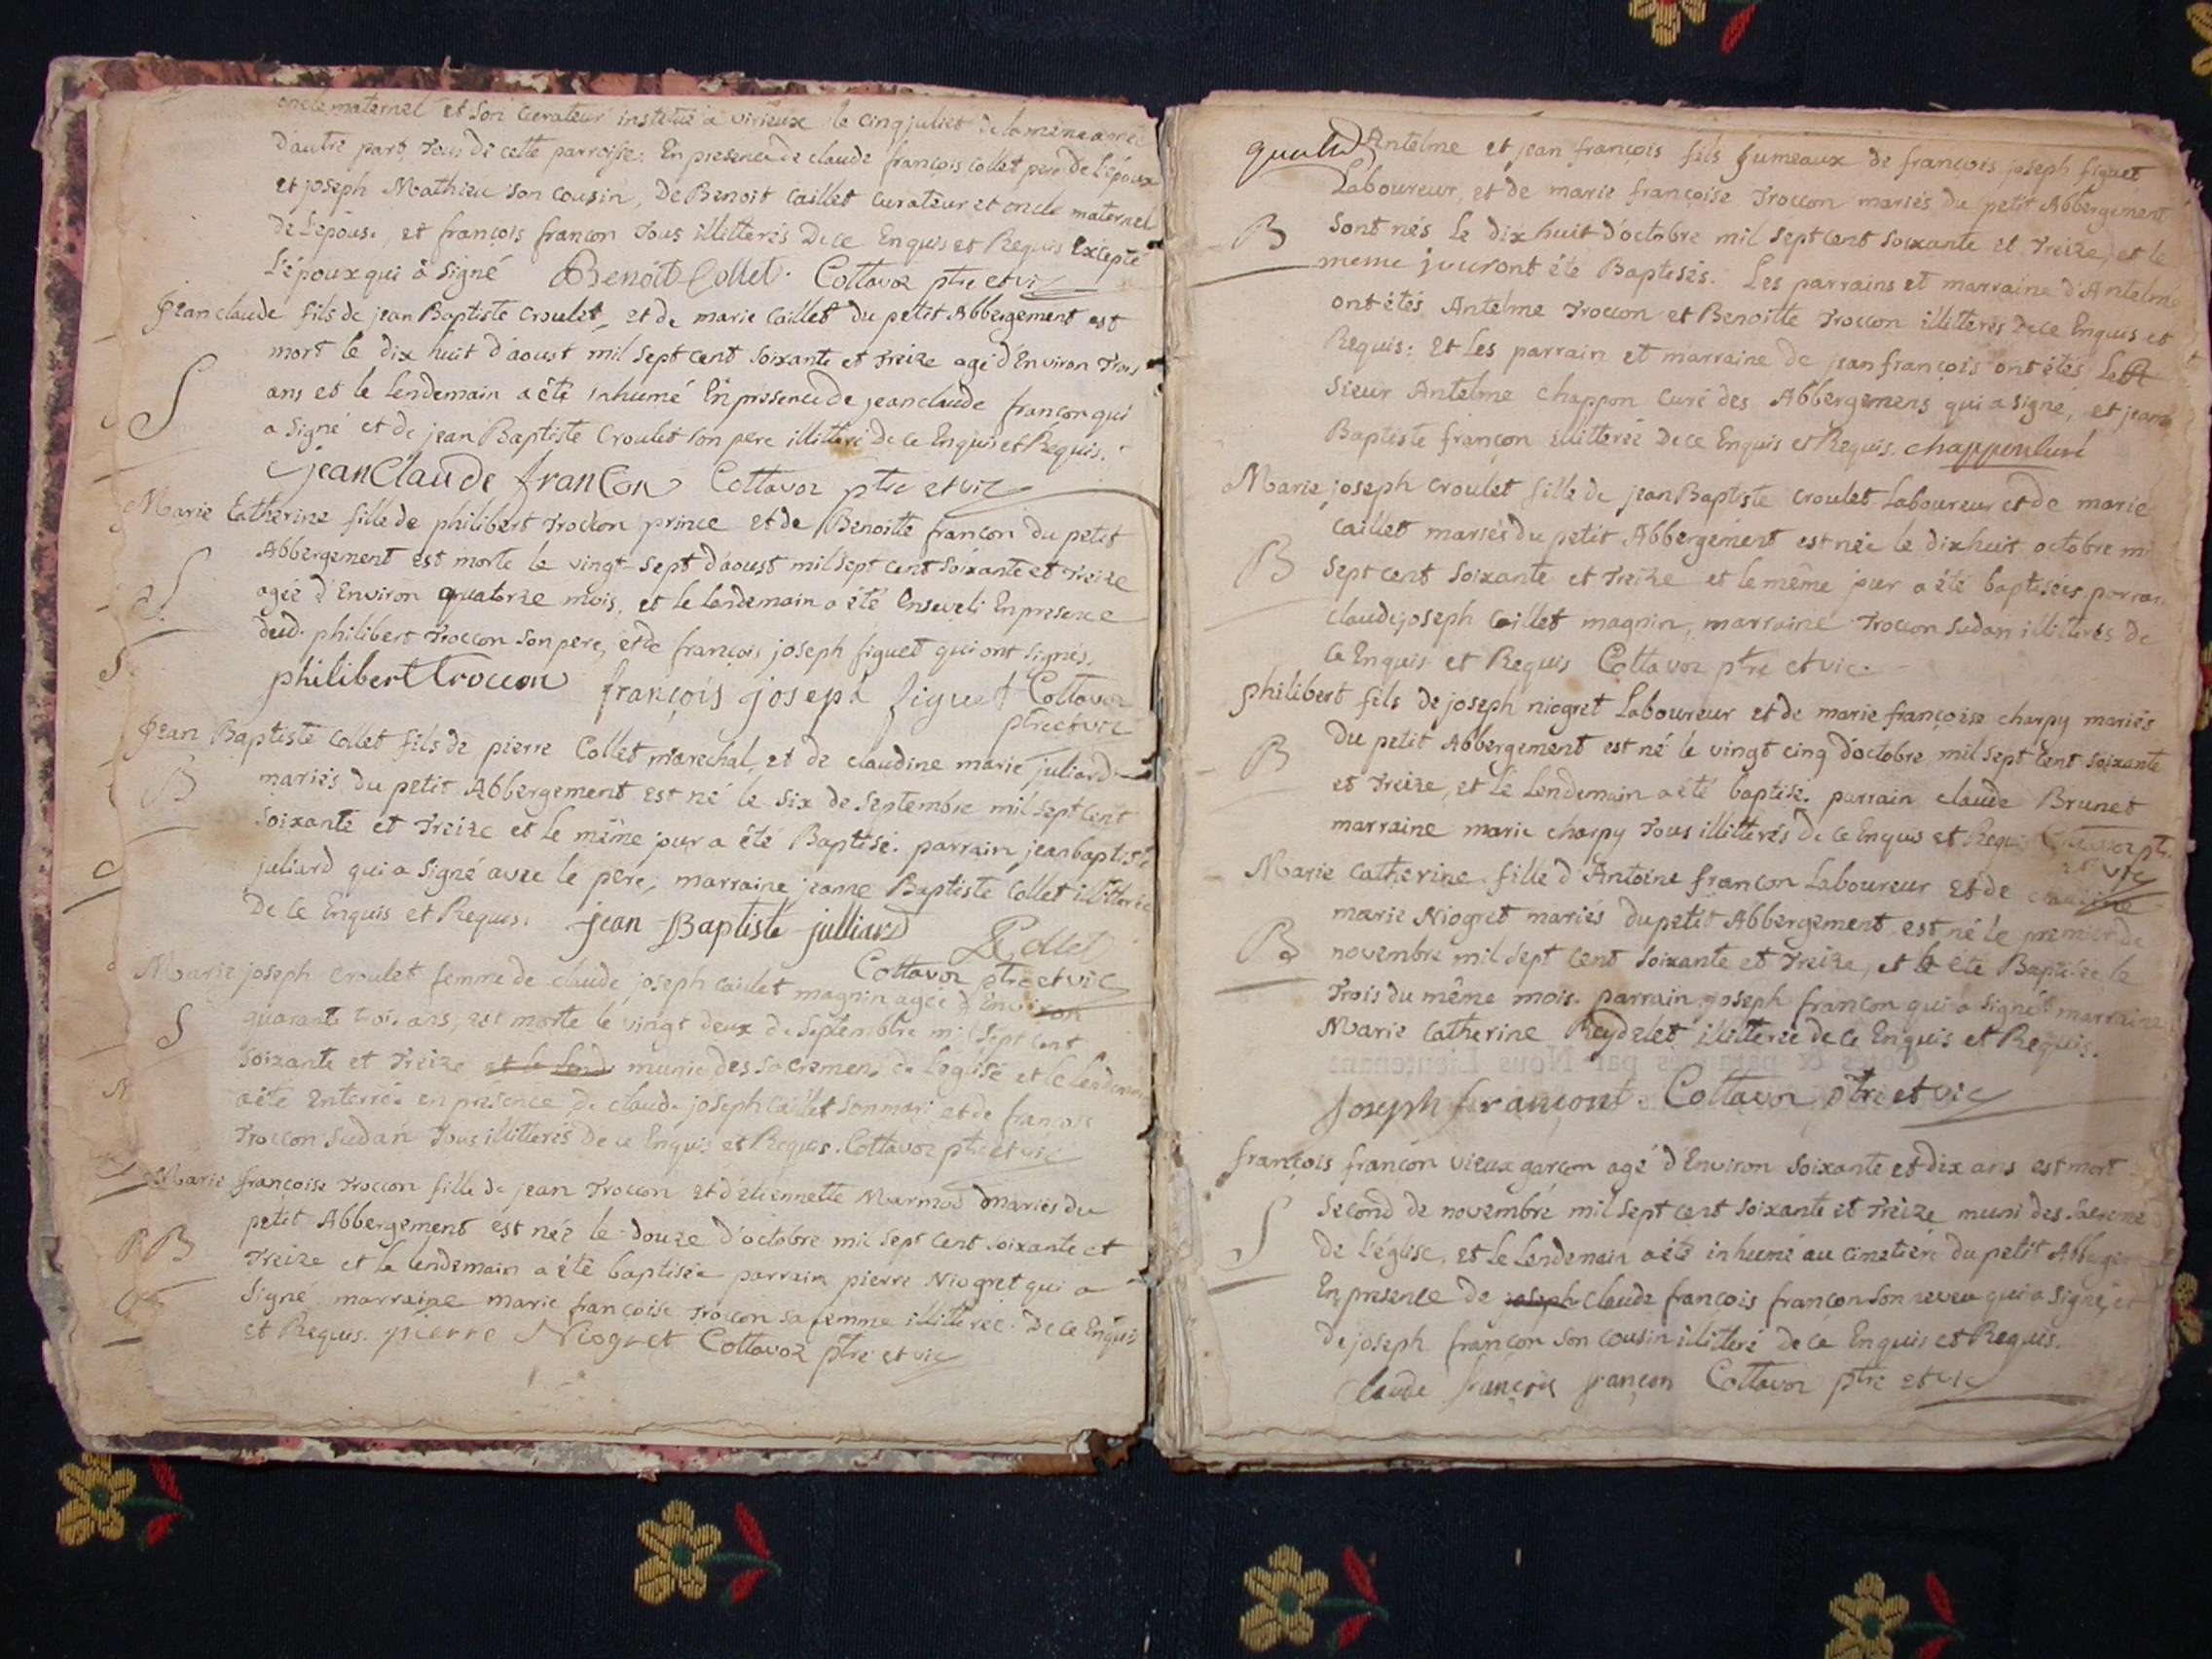 oncle maternel et son curateur institué a virieux le cinq juliet de la même année
d'autre part, Tous de cette parroisse: En presence de claude françois collet pere de L'époux
et joseph Mathieu son cousin, De Benoit Caillet curateur et oncle maternel
de L'épouse, et françois françon Tous illitterés De ce Enquis et Requis Excepté
L'époux qui a signé Benoît Collet. Cottavoz ptre et vic
Jean claude fils de jean Baptiste Croulet, et de marie Caillet du petit Abbergement est
mort le dix huit d'aoust mil sept cent soixante et Treize agé d'Environ Trois
S
ans et le Lendemain a été inhumé En presence de jean claude françon qui
a signé et de jean Baptiste Croulet son pere illitteré de ce Enquis et Requis.
jean Claude françon Cottavoz ptre et vic
Marie Catherine fille de philibert Troccon prince et de Benoitte françon du petit
Abbergement est morte le vingt sept d'aoust mil sept cent soixante et Treize
S
agée d'Environ quatorze mois, et le lendemain a été Enseveli En presence
dud. philibert Troccon son pere, et de françois joseph figuet qui ont signés.
philibert troccon françois joseph figuet Cottavoz
ptre et vic
Jean Baptiste Collet fils de pierre Collet marechal, et de claudine marie juliard
B
mariés du petit Abbergement est né le six de septembre mil sept cent
soixante et Treize et le même jour a été Baptisé. parrain jean baptiste
juliard qui a signé avec le pere, marraine jeanne Baptiste Collet illitterée
De ce Enquis et Requis. jean Baptiste julliard
P Collet
Cottavoz ptre et vic
Marie joseph Croulet femme de claude joseph caillet magnin agée d'Environ
S
quarante trois ans, est morte le vingt deux de septembre mil sept cent
soixante et Treize et le Lend. munie des sacremens de L'église et le Lendemain
a été enterrée en presence de claude joseph caillet son mari et de françois
Troccon sudan Tous illitterés De ce Enquis et Requis. Cottavoz ptre et vic
Marie françoise Troccon fille de jean Troccon et d'etiennette Marmod mariés du
petit Abbergement est née le douze d'octobre mil sept cent soixante et
B
Treize et le lendemain a été baptisée parrain pierre Niogret qui a
signé marraine marie françoise Troccon sa femme illitterée. De ce Enquis
et Requis. pierre Niogret Cottavoz ptre et vic
Antelme et jean françois fils jumeaux de françois joseph figuet
Laboureur, et de marie françoise Troccon mariés du petit Abbergement
B
sont nés Le dix huit d'octobre mil sept cent soixante et Treize, et le
meme jour ont été Baptisés. Les parrains et marraine d'Antelme
ont étés Antelme Troccon et Benoitte Troccon illitterés De ce Enquis et
Requis: Et Les parrain et marraine de jean françois ont étés
sieur Antelme Chappon Curé des Abbergemens qui a signé, et jeanne
Baptiste françon illitterée De ce Enquis et Requis. chappon curé
Marie joseph croulet fille de jean Baptiste Croulet Laboureur et de marie
Caillet mariés du petit Abbergement est née le dix huit octobre mil
B
sept cent soixante et Treize et le même jour a été baptisée. parrain
claude joseph Caillet magnin, marraine Troccon Sudan illitterés de
Ce Enquis et Requis Cottavoz ptre et vic.
philibert fils de joseph niogret Laboureur et de marie françoise charpy mariés
B
Du petit Abbergement est né le vingt cinq d'octobre mil sept cent soixante
et Treize, et le Lendemain a été baptisé. parrain claude Brunet
marraine marie charpy Tous illitterés de ce Enquis et Requis Cottavoz ptre
et vic
Marie Catherine fille d'Antoine françon Laboureur et de claudine
marie Niogret mariés du petit Abbergement est né le premier de
B
novembre mil sept cent soixante et Treize, et a été Baptisée le
Trois du même mois. parrain joseph françon qui a signé marraine
Marie Catherine Reydelet illitterée de ce Enquis et Requis.
Joseph françont. Cottavoz ptre et vic
françois françon vieux garçon agé d'Environ soixante et dix ans est mort
S
second de novembre mil sept cent soixante et Treize muni des sacremens
de L'église, et le Lendemain a été inhumé au cimetiere du petit Abbergement
En presence de joseph claude françois françon son neveu qui a signé, et
de joseph françon son cousin illitteré de ce Enquis et Requis.
Claude françois françon Cottavoz ptre et vic